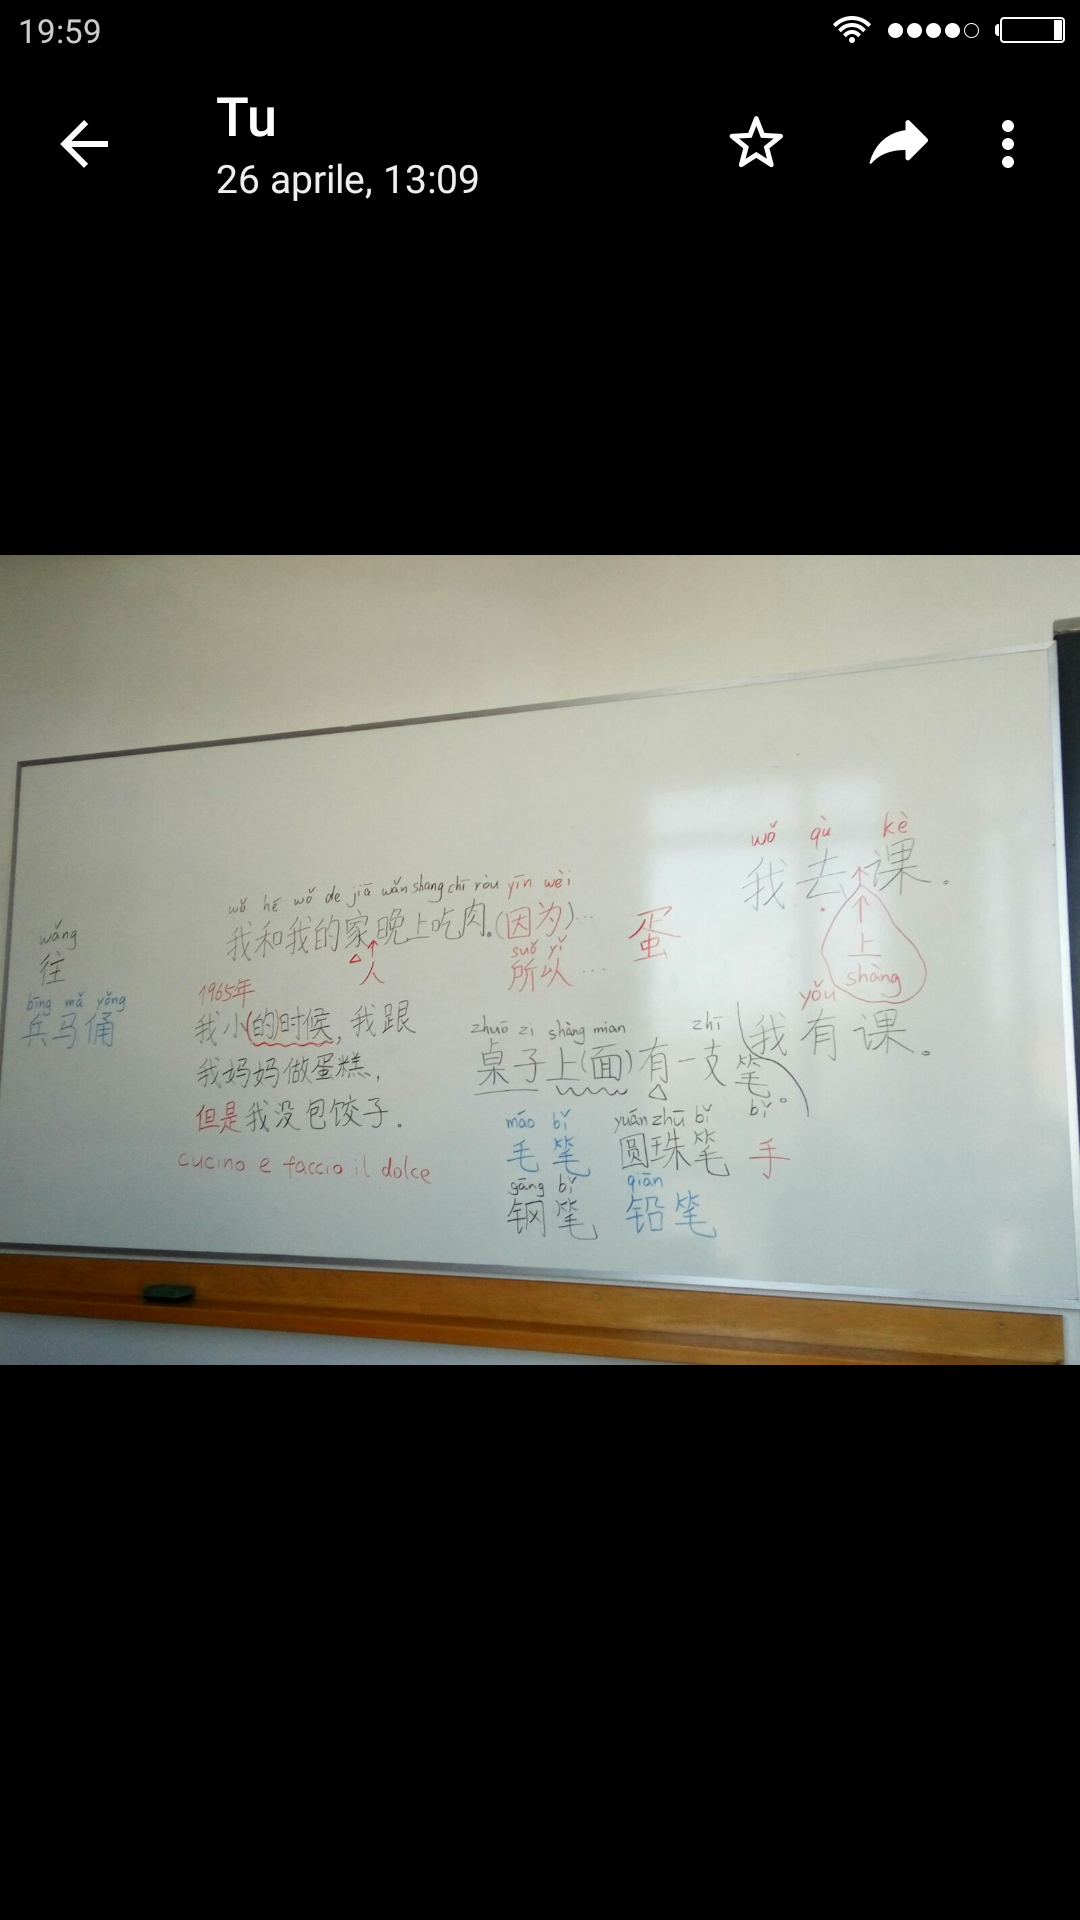 19:59
Tu
26 aprile, 13:09
wǎng
往
bīng mǎ yǒng
兵马俑
wǒ hé wǒ de jiā wǎn shang chī ròu yīn wèi
我和我的家晚上吃肉。(因为)...
人
suǒ yǐ
所以...
蛋
1965年
我小(的)时候,我跟
我妈妈做蛋糕,
但是我没包饺子.
cucino e faccio il dolce
wǒ qù kè
我去课.
上
shàng
yǒu
我有课。
zhuō zi shàng mian zhī
桌子上(面)有一支笔。
bǐ
máo bǐ yuán zhū bǐ
毛笔 圆珠笔 手
gāng bǐ qiān
钢笔 铅笔